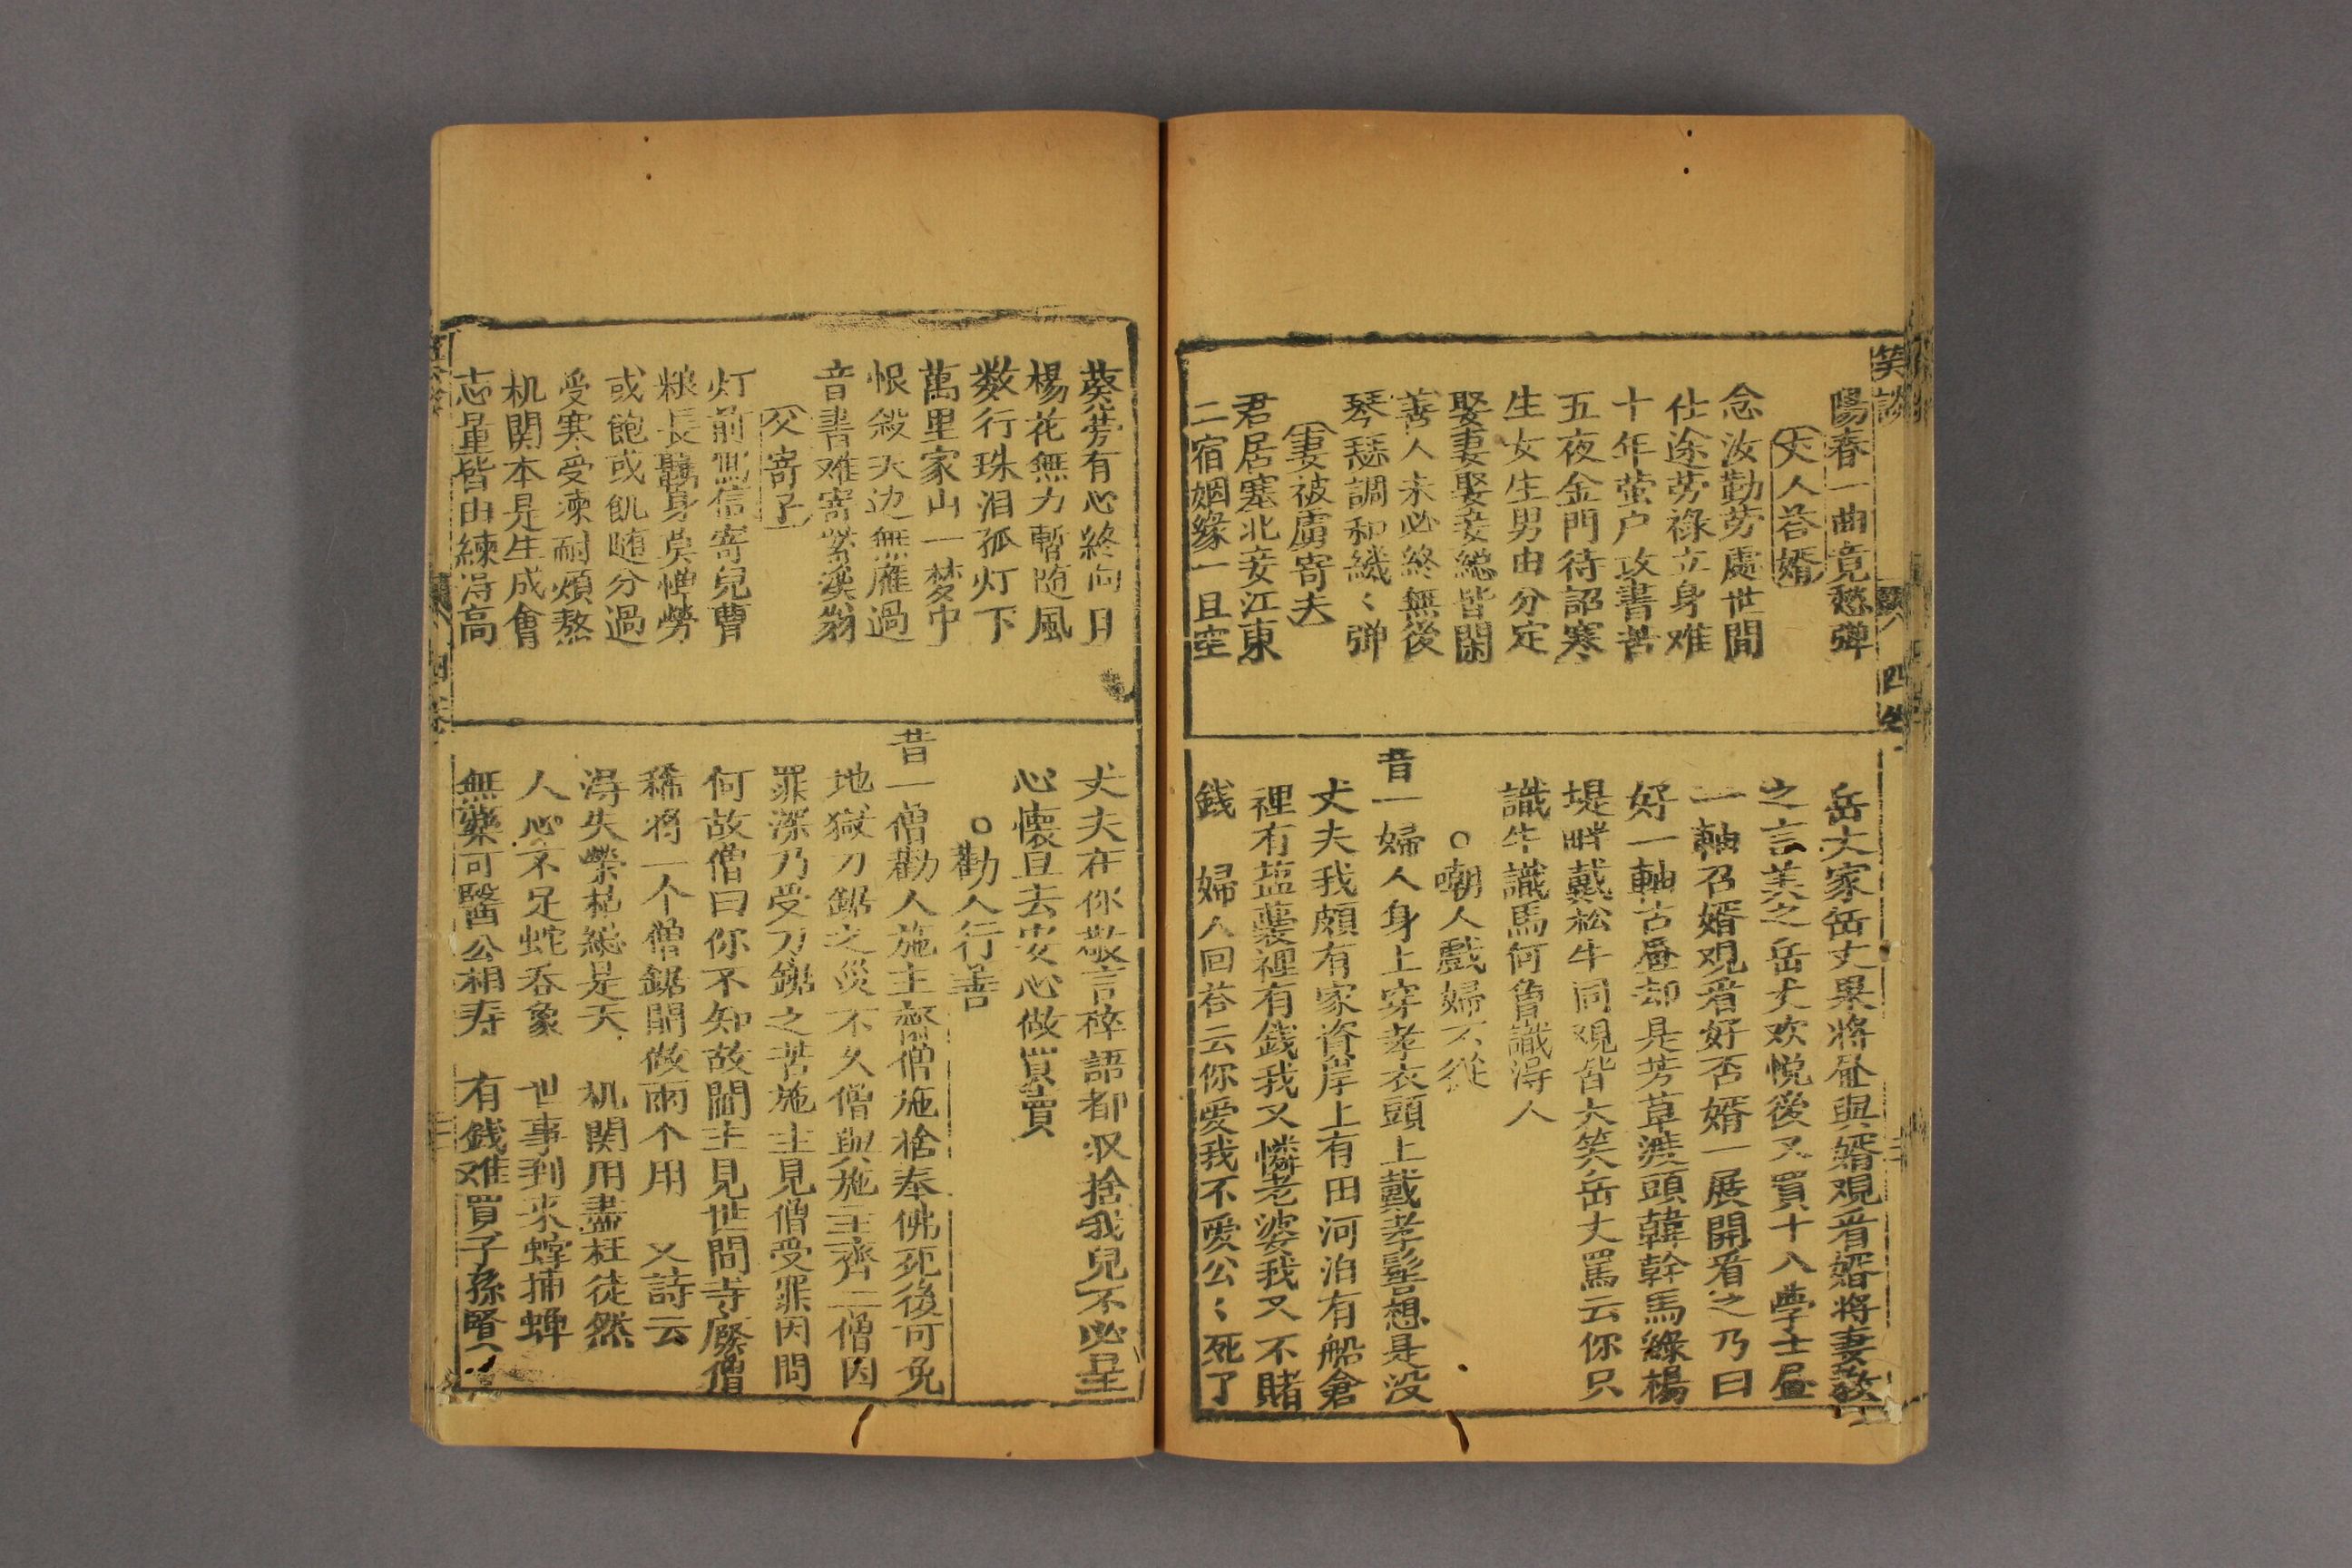 笑談
四卷
陽春一曲竟愁彈
丈人荅婿
念汝勤劳處世間
仕途劳祿立身难
十年萤户攻書苦
五夜金門待詔寒
生女生男由分定
娶妻娶妾総皆閑
善人未必終無後
琴瑟調和纔〻彈
妻被虜寄夫
君居塞北妾江東
二宿姻緣一旦空
岳丈家岳丈果将畫與婿观看婿将妻教
之言美之岳丈欢悦後又買十八學士畫
一軸召婿观看好否婿一展開看之乃曰
好一軸古畫却是芳草渡頭韓幹馬綠楊
堤畔戴松牛同观皆大笑岳丈罵云你只
識牛識馬何曾識淂人
○嘲人戲婦不從
昔一婦人身上穿孝衣頭上戴孝髻想是没
丈夫我頗有家資岸上有田河泊有船倉
裡有盐囊裡有錢我又憐老婆我又不賭
錢　婦人回荅云你愛我不愛公〻死了
葵芳有心終向日
楊花無力暫随風
数行珠泪孤灯下
萬里家山一梦中
恨殺天边無雁過
音書难寄紫溪翁
父寄子
灯前寫信寄兒曹
粮長羈身莫憚勞
或飽或飢随分過
受寒受凍耐煩熬
机関本是生成會
志量皆由練淂高
丈夫在你敬言碎語都収捨我兒不必呈
心懷且去安心做買賣
○勸人行善
昔一僧勸人施主齋僧施捨奉佛死後可免
地獄刀鋸之災不久僧與施主齊亡僧因
罪深乃受刀鋸之苦施主見僧受罪因問
何故僧曰你不知故閻主見世間寺廢僧
稀将一个僧鋸開做兩个用　又詩云
淂失榮枯総是天　机関用盡枉徒然
人心不足蛇吞象　世事到來螳捕蟬
無藥可醫公相寿　有錢难買子孫賢